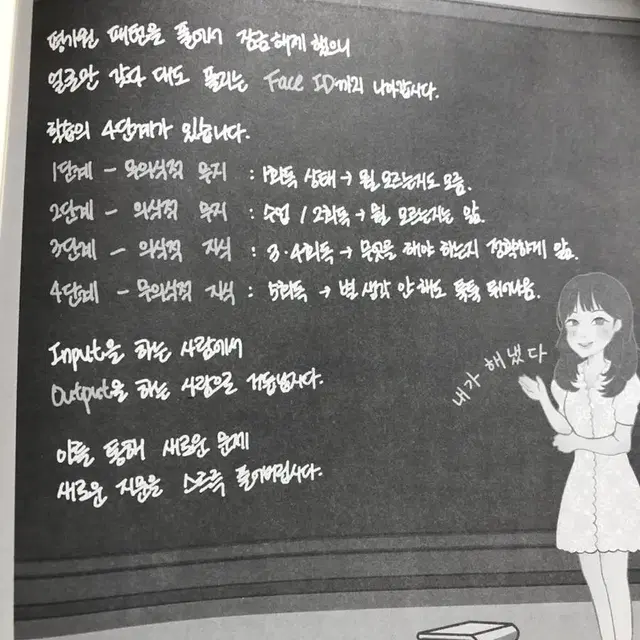 평가원 패턴을 풀어서 잠금해제 했으니
얼굴만 갖다 대도 풀리는 Face ID까지 나아갑시다.
학습의 4단계가 있습니다.
1단계 - 무의식적 무지 : 1회독 상태 → 뭘 모르는지도 모름.
2단계 - 의식적 무지 : 수업 / 2회독 → 뭘 모르는지는 앎.
3단계 - 의식적 지식 : 3·4회독 → 무엇을 해야 하는지 정확하게 앎.
4단계 - 무의식적 지식 : 5회독 → 별 생각 안 해도 툭툭 튀어나옴.
Input을 하는 사람에서
Output을 하는 사람으로 거듭납시다.
이를 통해 새로운 문제
새로운 지문을 스르륵 풀어버립시다.
내가 해냈다